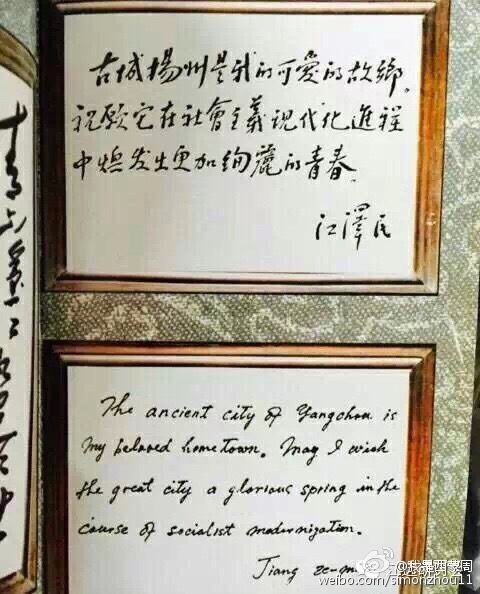 古城揚州是我的可爱的故鄉。
祝願它在社會主義現代化進程
中焕发出更加绚麗的青春.
江澤民
The ancient city of Yangchou is
my beloved hometown. May I wish
the great city a glorious spring in the
course of socialist modernization.
Jiang
weibo.com/simonzhou11